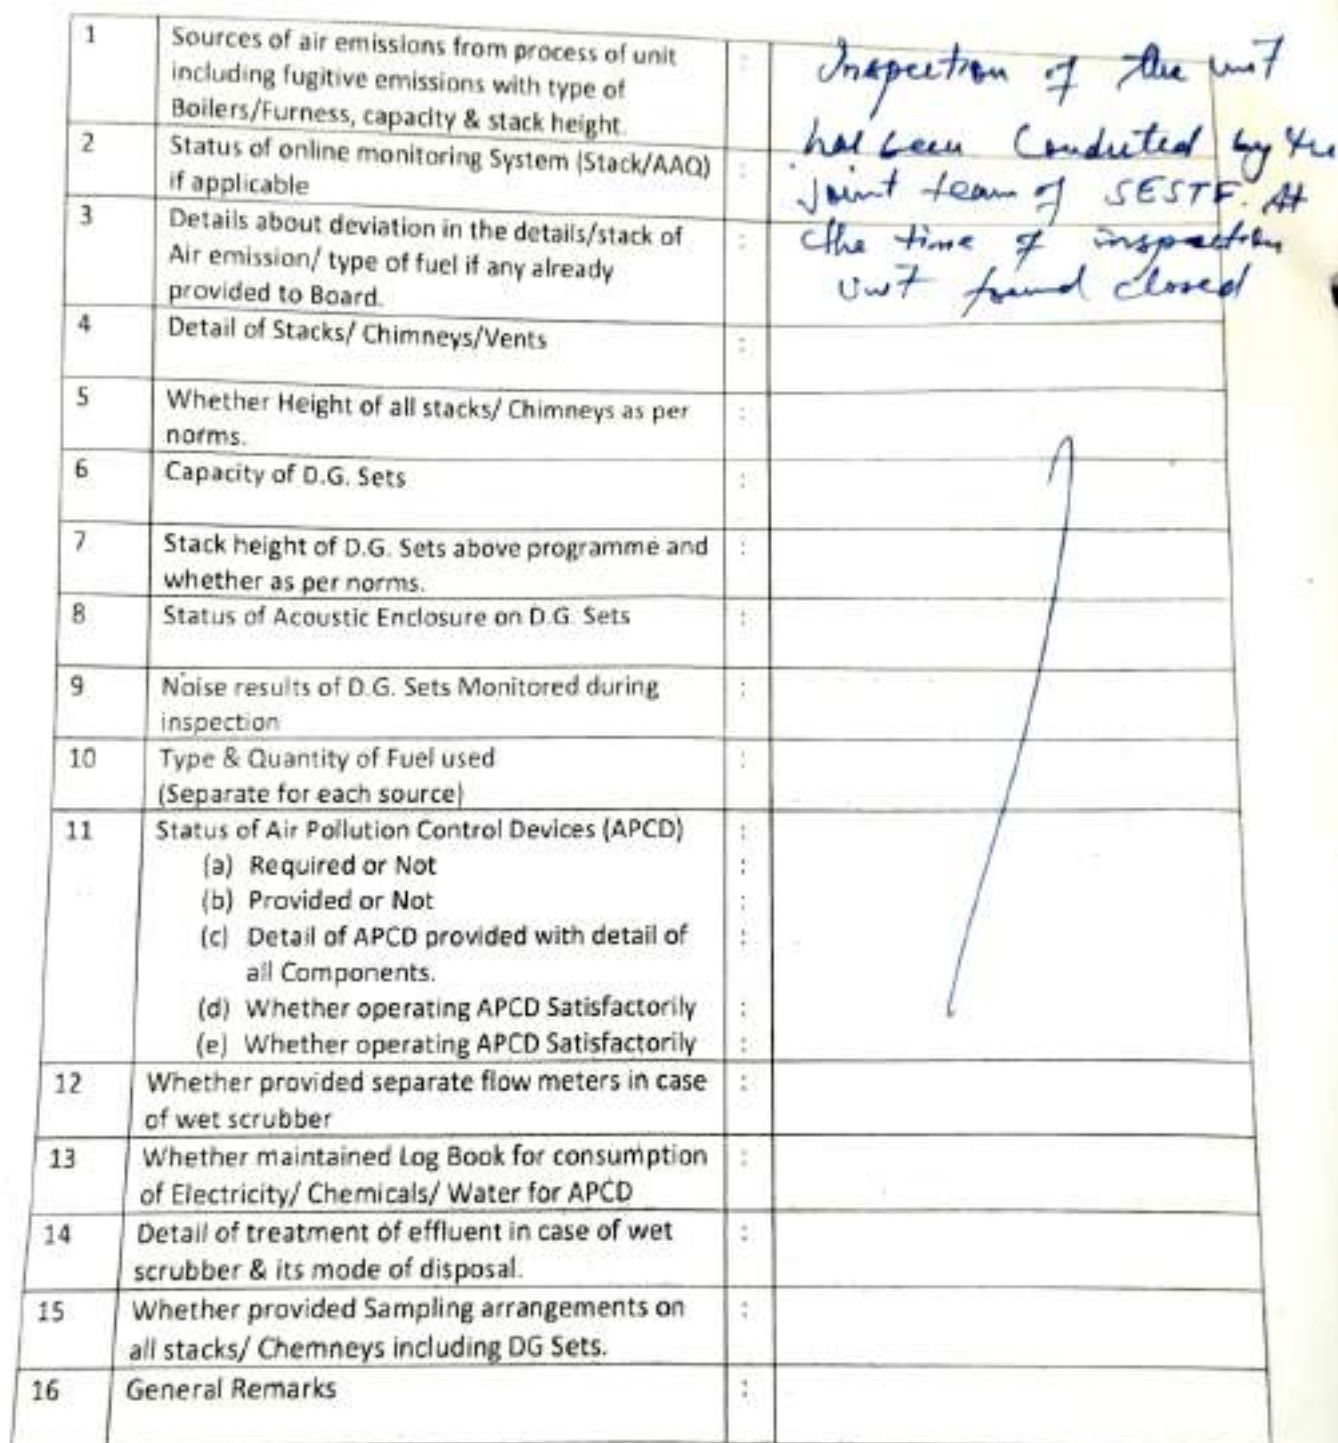 1 Sources of air emissions from process of unit
including fugitive emissions with type of
Boilers/Furness, capacity & stack height.
:
Inspection of the unit
has been Conducted by the
joint team of SESTF. At
the time of inspection
unit found closed
2 Status of online monitoring System (Stack/AAQ) :
if applicable
3 Details about deviation in the details/stack of :
Air emission/ type of fuel if any already
provided to Board.
4 Detail of Stacks/ Chimneys/Vents :
5 Whether Height of all stacks/ Chimneys as per :
norms.
6 Capacity of D.G. Sets :
7 Stack height of D.G. Sets above programme and :
whether as per norms.
8 Status of Acoustic Enclosure on D.G. Sets :
9 Noise results of D.G. Sets Monitored during :
inspection
10 Type & Quantity of Fuel used :
(Separate for each source)
11 Status of Air Pollution Control Devices (APCD) :
(a) Required or Not :
(b) Provided or Not :
(c) Detail of APCD provided with detail of :
all Components.
(d) Whether operating APCD Satisfactorily :
(e) Whether operating APCD Satisfactorily :
12 Whether provided separate flow meters in case :
of wet scrubber
13 Whether maintained Log Book for consumption :
of Electricity/ Chemicals/ Water for APCD
14 Detail of treatment of effluent in case of wet :
scrubber & its mode of disposal.
15 Whether provided Sampling arrangements on :
all stacks/ Chemneys including DG Sets.
16 General Remarks :